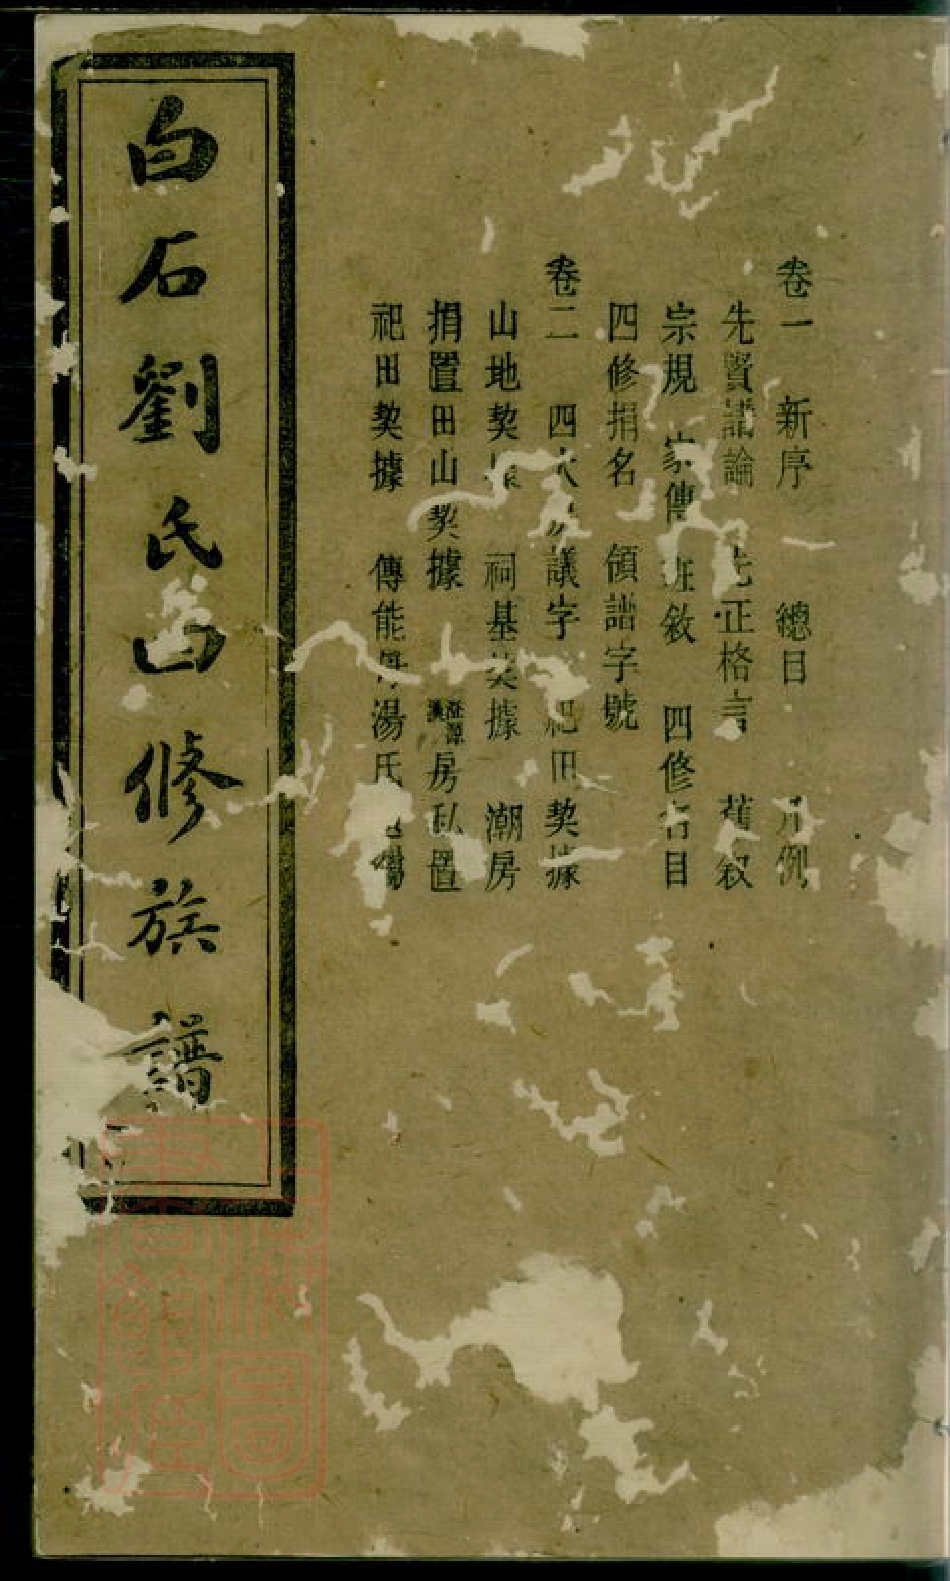 卷一 新序 總目 凡例
先賢譜論 先正格言 舊敘
宗規 家傳 班敘 四修名目
四修捐名 領譜字號
卷二 四大 議字 祀田契據
山地契據 祠基契據 潮房
捐置田山契據 房私置
祀田契據 傳能 湯氏
白石劉氏四修族譜